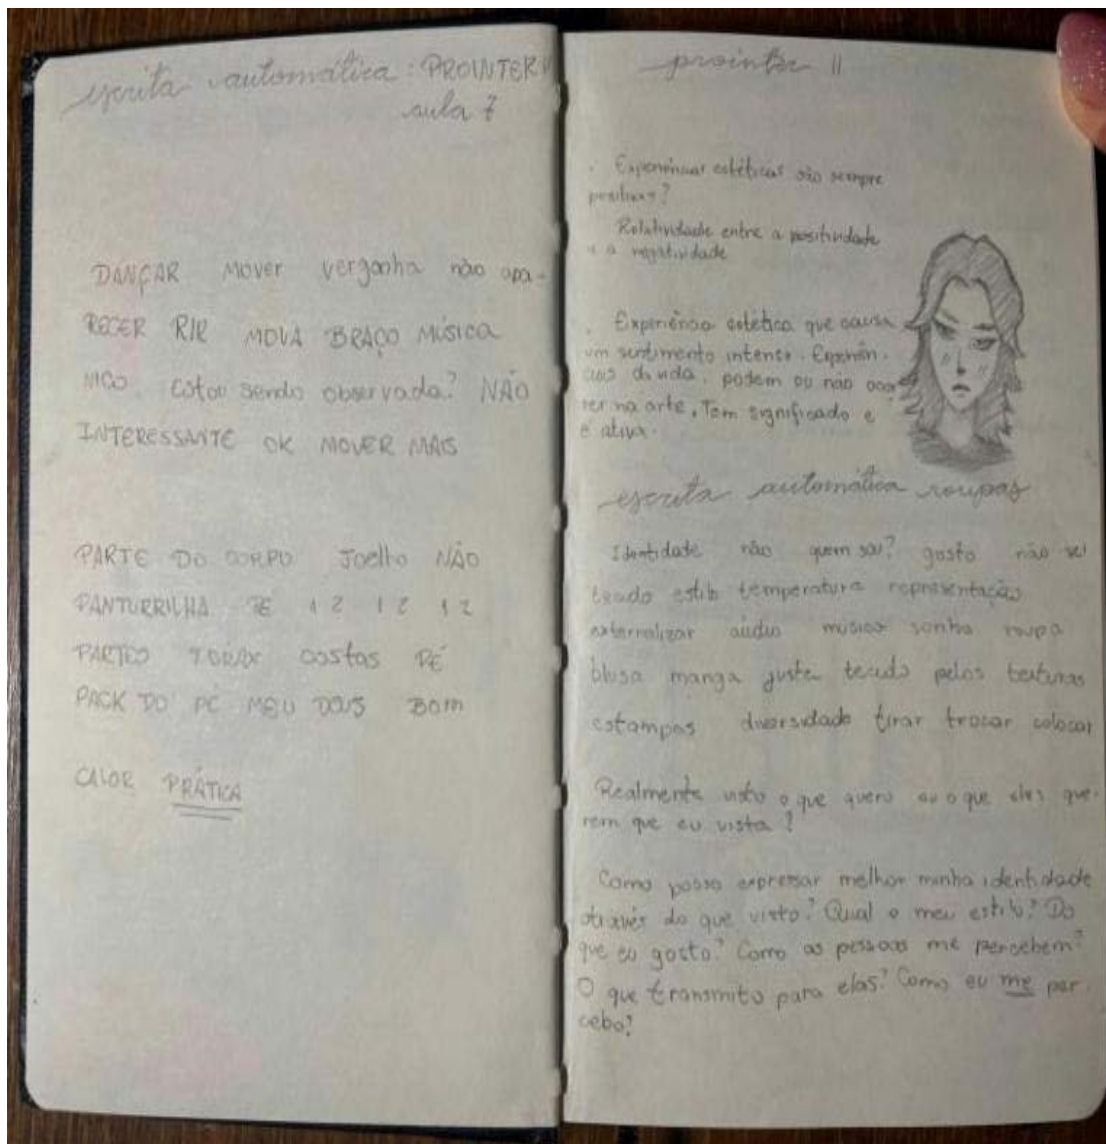 escrita automática: PROINTER II
aula 7
DANÇAR MOVER vergonha não apa-
RECER RIR MOVA BRAÇO MÚSICA
NICO. Estou sendo observada? NÃO
INTERESSANTE OK MOVER MAIS
PARTE DO CORPO Joelho NÃO
PANTURRILHA PÉ 1 2 1 2 1 2
PARTES TÓRAX COSTAS PÉ
PACK DO PÉ MEU DEUS BOM
CALOR PRÁTICA
prointer II
. Experiências estéticas são sempre
positivas?
Relatividade entre a positividade
e a negatividade
. Experiência estética que causa
um sentimento intenso. Experiên-
cias da vida, podem ou não ocor-
rer na arte. Tem significado e
é ativa.
escrita automática roupas
Identidade não quem sou? gosto não sei
tecido estilo temperatura representação
externalizar áudio música sonho roupa
blusa manga justa tecido pelos texturas
estampas diversidade tirar trocar colocar
Realmente visto o que quero ou o que eles que-
rem que eu vista?
Como posso expressar melhor minha identidade
através do que visto? Qual o meu estilo? Do
que eu gosto? Como as pessoas me percebem?
O que transmito para elas? Como eu me per-
cebo?